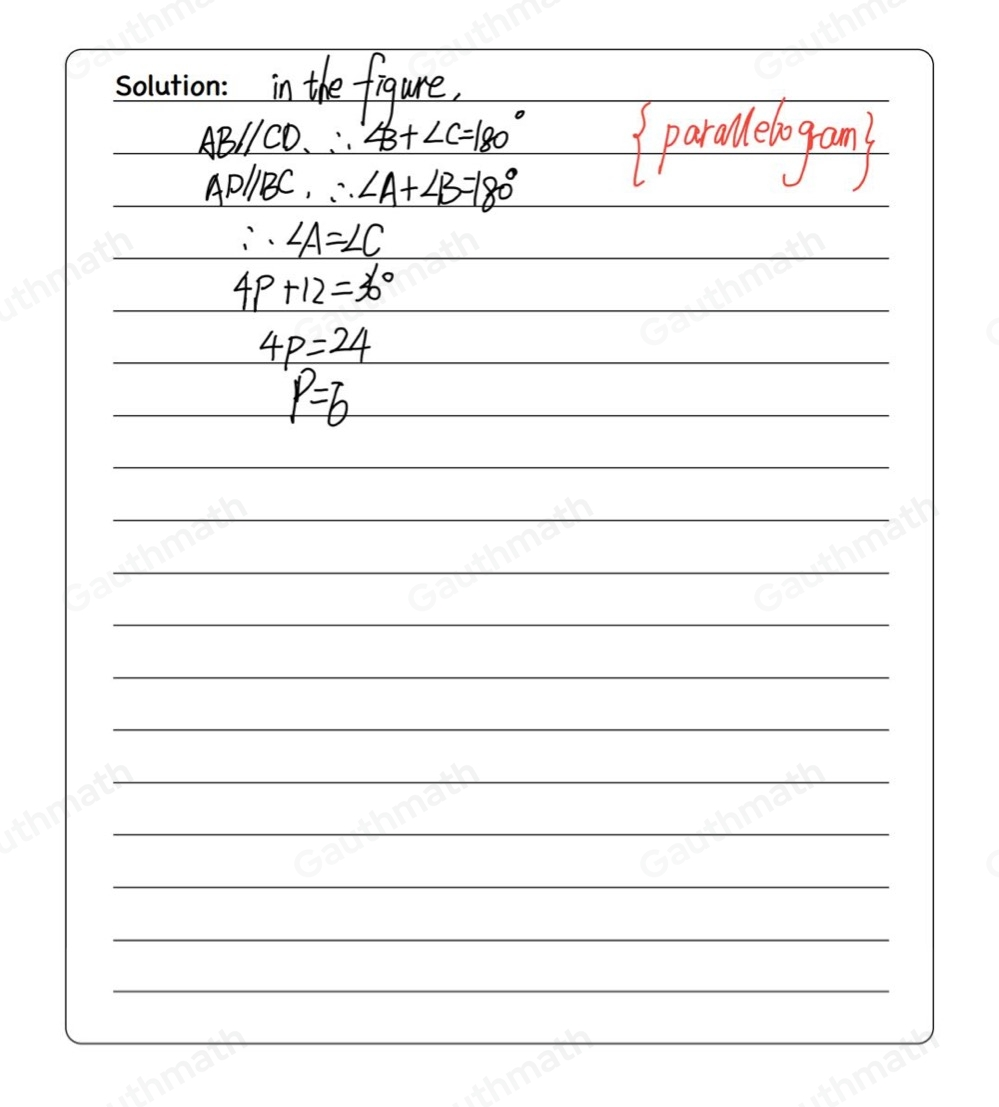 Solution: in the figure,
AB//CD, ∴ ∠B+∠C=180°
{parallelogram}
AD//BC, ∴ ∠A+∠B=180°
∴ ∠A=∠C
4P+12=36°
4P=24
P=6
Gauthmath